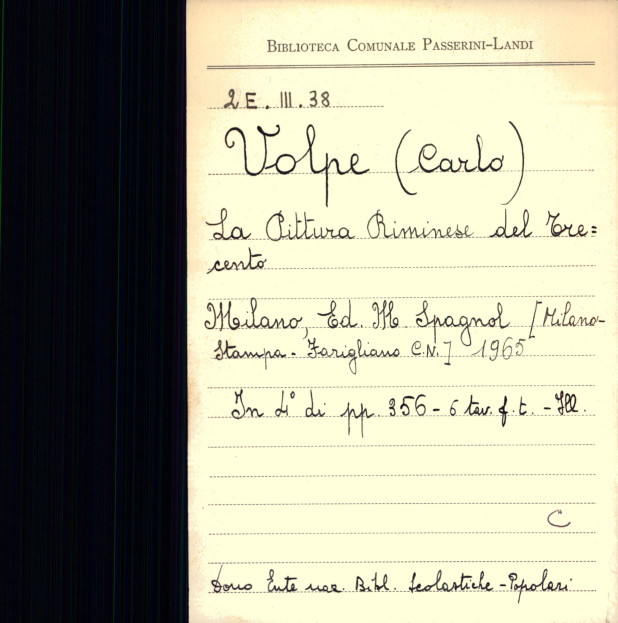 BIBLIOTECA COMUNALE PASSERINI-LANDI
2 E. III. 38
Volpe (Carlo)
La Pittura Riminese del Tre=
cento
Milano, Ed. M. Spagnol [Milano-
Stampa - Farigliano C.N.] 1965
In 4° di pp. 356 - 6 tav. f. t. - Ill.
C
Dono Ente naz. Bibl. Scolastiche - Popolari